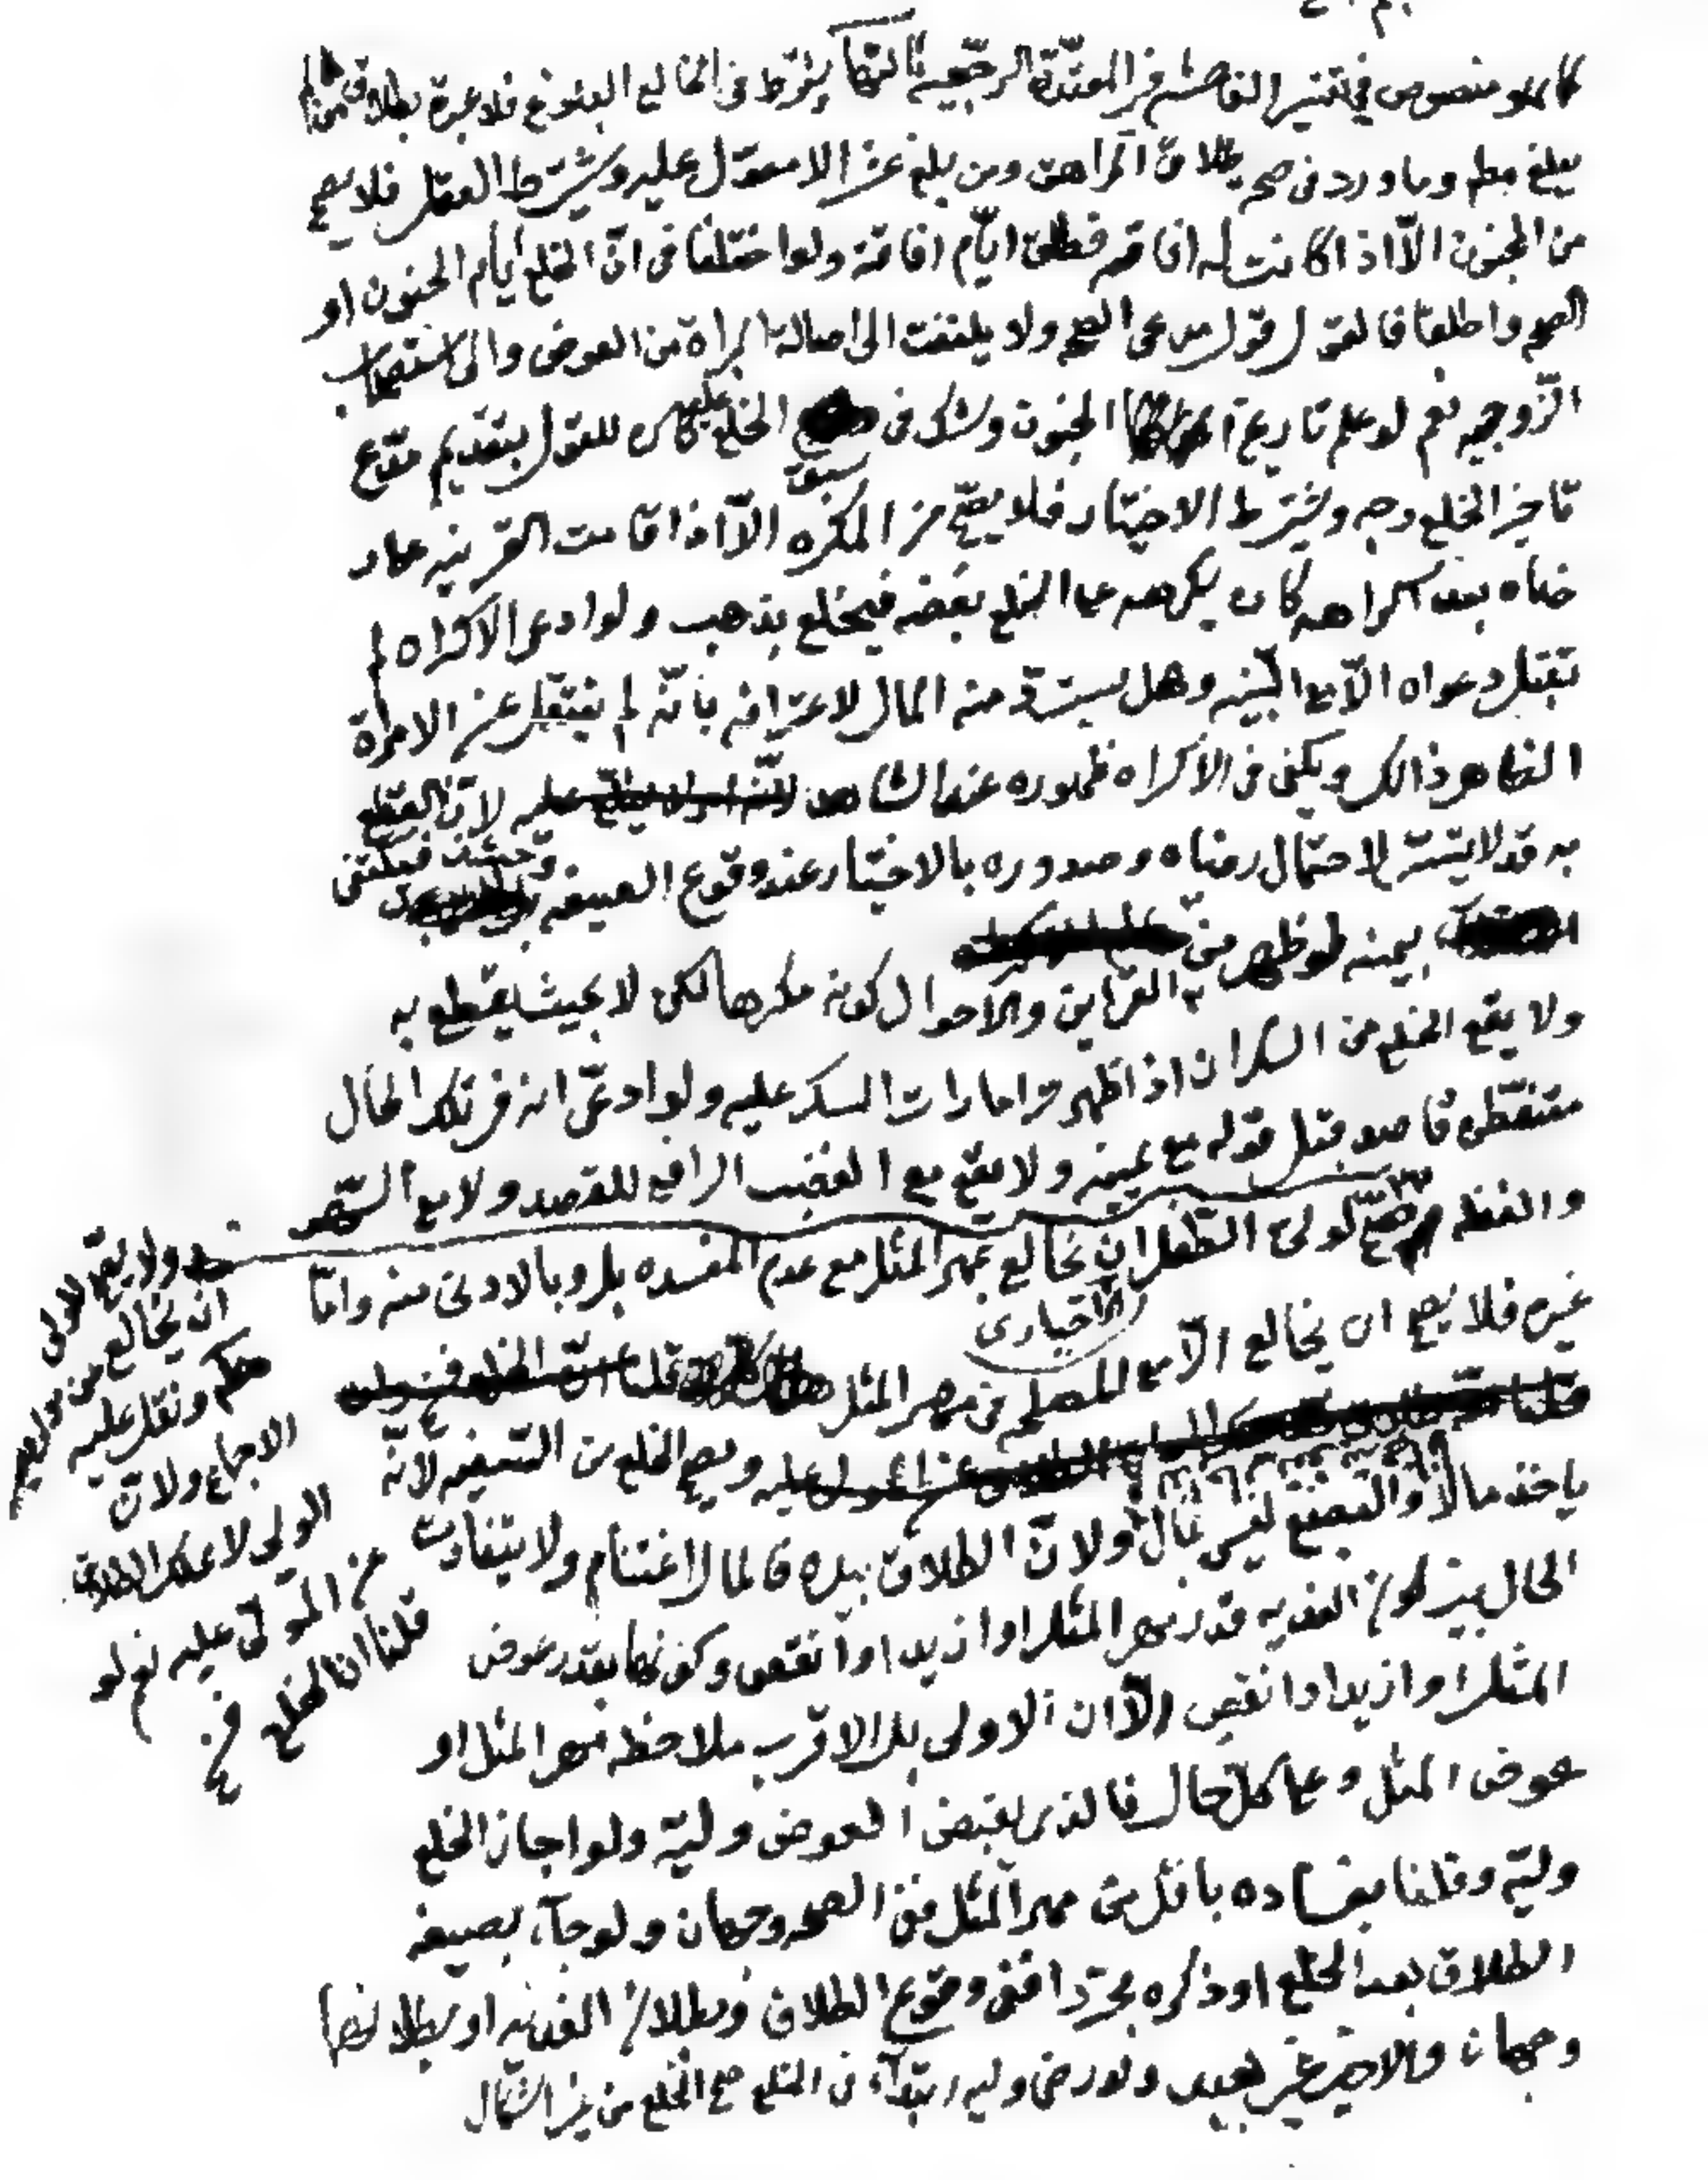 كما هو منصوص في تفسير الفاحشة في المعتدة الرجعية ثالثها يشترط في الخالع البلوغ فلا عبرة بطلاق من لم
يبلغ مطم وما ورد في صحة طلاق المراهق ومن بلغ عشرا لا معول عليه ويشترط العقل فلا يصح
من المجنون الّا اذا كانت له افاقة فطلق ايّام افاقته ولو اختلفا في انّ الخلع ايام الجنون او
الصحه واطلقا فالقول قول مدعى الصحه ولا يلتفت الى اصالة البراءة من العوض والى استصحاب
الزّوجيه نعم لو علم تاريخ الجنون وشك في سبق الخلع عليه كان للقول بتقديم
تاخير الخلع وجه ويشترط الاختيار فلا يصحّ من المكره الّا اذا قامت القرينه على
رضاه بعد اكراهه كان يكرهه على الخلع بفضه فيخلع بذهب ولو ادعى الاكراه لم
تقبل دعواه الّا مع البيّنه وهل يستردّ منه المال لاعترافه بانّه لم ينتقل عن الامرأة
الظاهر ذالك ويكفى في الاكراه ظهوره عند الشاهد عليه لانّ القطع
به قد لا يتيسّر لاحتمال رضاه وصدوره بالاختيار عند وقوع الصيغه وحينئذ فيكتفى
بيمينه لو ظهر من القراين والاحوال كونه مكرها لكن لا بحيث يقطع به
ولا يقع الخلع من السكران اذا ظهر امارات السكر عليه ولو ادعى انه في تلك الحال
متفطن قاصد قبل قوله مع يمينه ولا يقع مع الغضب الرافع للقصد ولا مع السّهو
والغفلة ويصحّ لولىّ الطّفل ان يخالع بمهر المثل مع عدم المفسده بل وبالادنى منه وامّا
الاجبارى
غيره فلا يصح ان يخالع الّا مع المصلحه من مهر المثل قلنا انّ الخلع فسخ
عليه ويصح الخلع من السّفيه لانّه
ياخذ مالا والبضع ليس بمال ولانّ الطلاق بيده فالمال اغتنام ولا يتفاوت
الحال بين كون الفديه قدر مهر المثل او ازيد او انقص وكونها بقدر عوض
المثل او ازيد او انقص الّا ان الاولى بل الاقرب ملاحظة مهر المثل او
عوض المثل وعلى كلّ حال فالذى يقبض العوض وليّه ولو اجاز الخلع
وليّه وقلنا بفساده باقل من مهر المثل ففى الصحه وجهان ولو جاء بصيغه
الطلاق بعد الخلع او ذكره مجرّدا ففى وقوع الطلاق وبطلان الفديه او بطلانهما
وجهان والاخير غير بعيد ولو رضى وليه ابتداء في الخلع صح الخلع من غير اشكال
ولا يصح للولى
ان يخالع من
مطم ونقل عليه
الاجماع ولانّ
الولى لا يملك الطلاق
عن المولّى عليه نعم لو
قلنا ان الخلع
فسخ